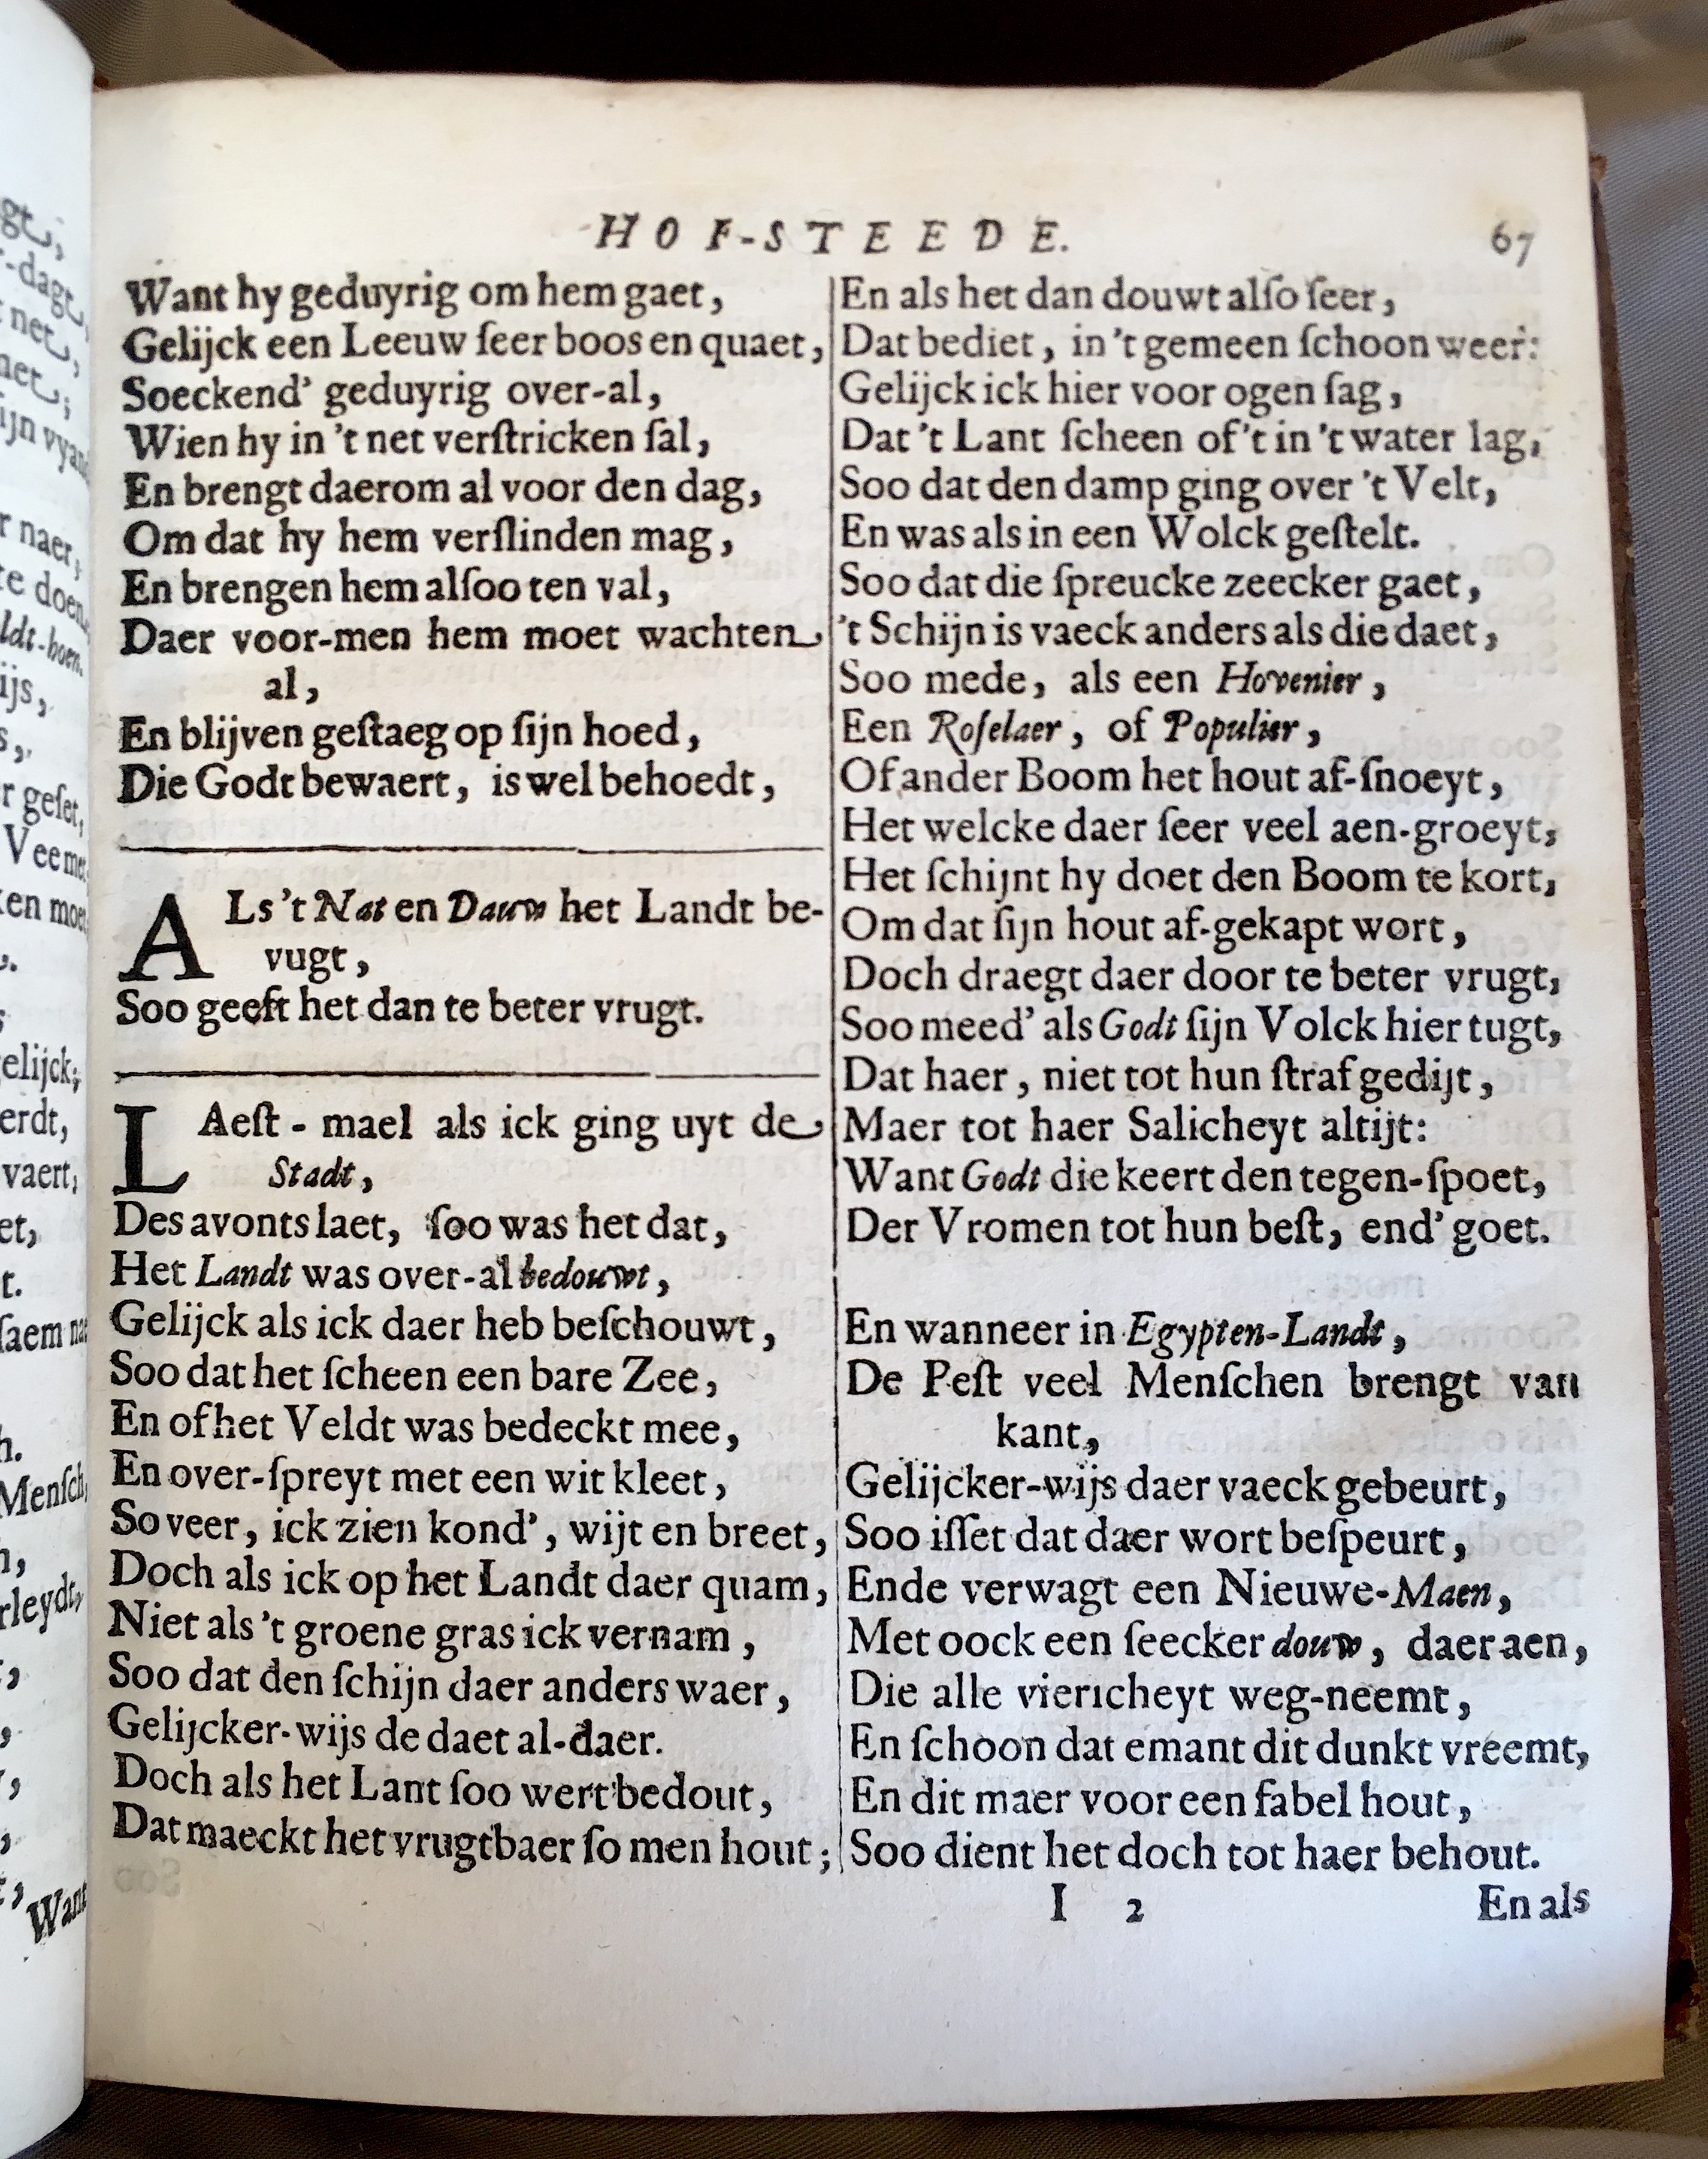 HOF-STEEDE. 67
Want hy geduyrig om hem gaet,
Gelijck een Leeuw ſeer boos en quaet,
Soeckend’ geduyrig over-al,
Wien hy in ’t net verſtricken ſal,
En brengt daerom al voor den dag,
Om dat hy hem verſlinden mag,
En brengen hem alſoo ten val,
Daer voor-men hem moet wachten
al,
En blijven geſtaeg op ſijn hoed,
Die Godt bewaert, is wel behoedt,
ALs ’t Nat en Dauw het Landt be-
vugt,
Soo geeft het dan te beter vrugt.
LAeſt-mael als ick ging uyt de
Stadt,
Des avonts laet, ſoo was het dat,
Het Landt was over-al bedouwt,
Gelijck als ick daer heb beſchouwt,
Soo dat het ſcheen een bare Zee,
En of het Veldt was bedeckt mee,
En over-ſpreyt met een wit kleet,
So veer, ick zien kond’, wijt en breet,
Doch als ick op het Landt daer quam,
Niet als ’t groene gras ick vernam,
Soo dat den ſchijn daer anders waer,
Gelijcker-wijs de daet al-daer.
Doch als het Lant ſoo wert bedout,
Dat maeckt het vrugtbaer ſo men hout;
En als het dan douwt alſo ſeer,
Dat bediet, in ’t gemeen ſchoon weer:
Gelijck ick hier voor ogen ſag,
Dat ’t Lant ſcheen of ’t in ’t water lag,
Soo dat den damp ging over ’t Velt,
En was als in een Wolck geſtelt.
Soo dat die ſpreucke zeecker gaet,
’t Schijn is vaeck anders als die daet,
Soo mede, als een Hovenier,
Een Roſelaer, of Populier,
Of ander Boom het hout af-ſnoeyt,
Het welcke daer ſeer veel aen-groeyt,
Het ſchijnt hy doet den Boom te kort,
Om dat ſijn hout af-gekapt wort,
Doch draegt daer door te beter vrugt,
Soo meed’ als Godt ſijn Volck hier tugt,
Dat haer, niet tot hun ſtraf gedijt,
Maer tot haer Salicheyt altijt:
Want Godt die keert den tegen-ſpoet,
Der Vromen tot hun beſt, end’ goet.
En wanneer in Egypten-Landt,
De Peſt veel Menſchen brengt van
kant,
Gelijcker-wijs daer vaeck gebeurt,
Soo iſſet dat daer wort beſpeurt,
Ende verwagt een Nieuwe-Maen,
Met oock een ſeecker douw, daer aen,
Die alle viericheyt weg-neemt,
En ſchoon dat emant dit dunkt vreemt,
En dit maer voor een fabel hout,
Soo dient het doch tot haer behout.
I 2 En als